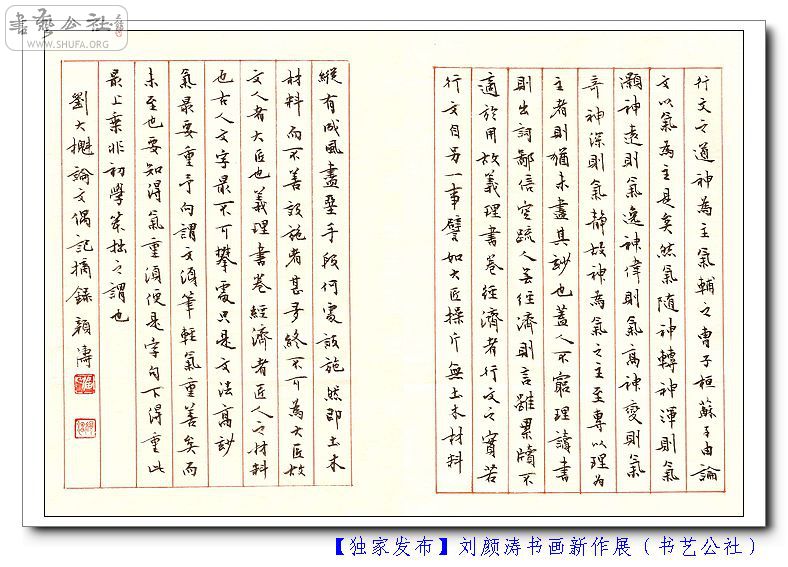 書藝公社
WWW.SHUFA.ORG
行文之道神為主氣輔之曹子桓蘇子由論
文以氣為主是矣然氣隨神轉神渾則氣
灝神遠則氣逸神偉則氣高神變則氣
奇神深則氣靜故神為氣之主至專以理為
主者則猶未盡其妙也蓋人不窮理讀書
則出詞鄙倍空疏人無經濟則言雖累牘不
適於用故義理書卷經濟者行文之實若
行文自另一事譬如大匠操斤無土木材料
縱有成風盡堊手段何處設施然即土木
材料而不善設施者甚多終不可為大匠故
文人者大匠也義理書卷經濟者匠人之材料
也古人文字最不可攀處只是文法高妙
氣最要重予向謂文須筆輕氣重善矣而
未至也要知得氣重須便是字句下得重此
最上乘非初學笨拙之謂也
劉大櫆論文偶記摘錄 顏濤
【独家发布】刘颜涛书画新作展（书艺公社）